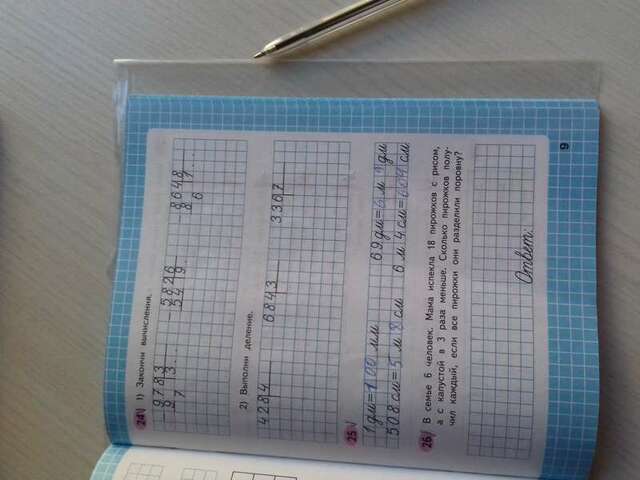 24 1) Закончи вычисления.
9783 5826 8648
9 3 549 8 7
7 6
2) Выполни деление.
4284 6843 3367
25
1дм=100мм 69дм=6м 9дм
508см=5м 8см 6м 4см=604см
26 В семье 6 человек. Мама испекла 18 пирожков с рисом,
а с капустой в 3 раза меньше. Сколько пирожков полу-
чил каждый, если все пирожки они разделили поровну?
Ответ:
9